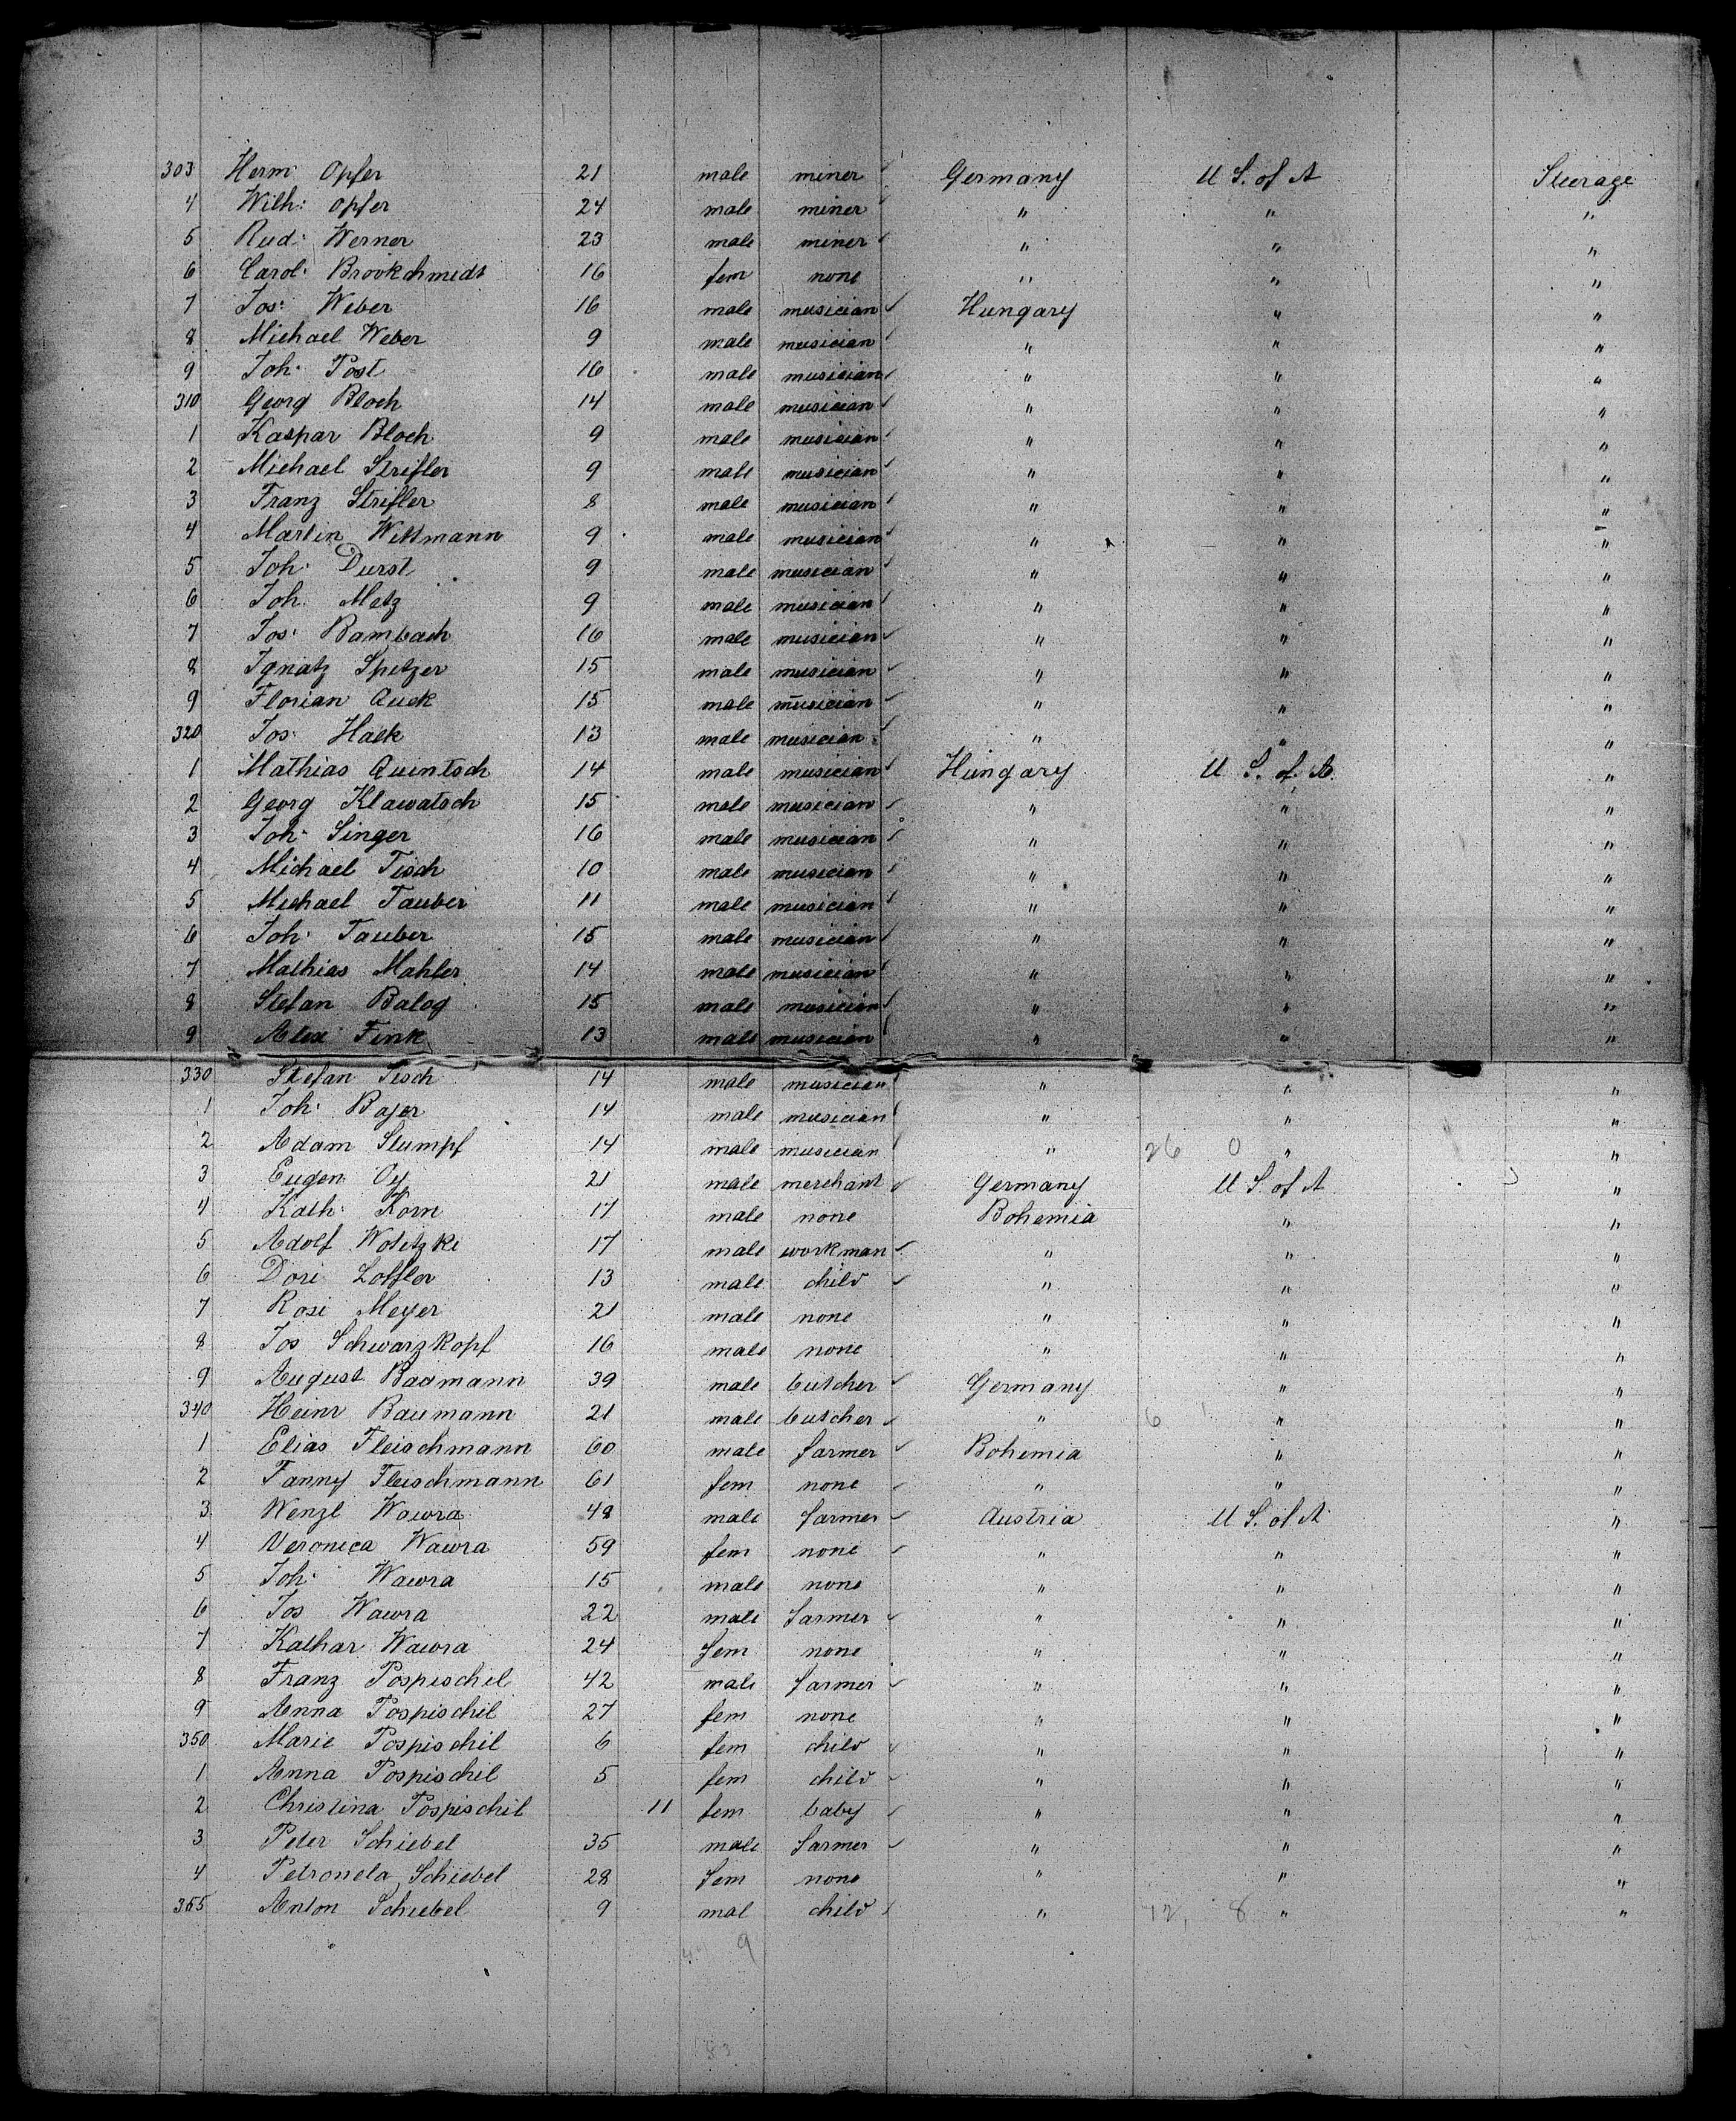 303 Herm: Opfer 21 male miner Germany U S. of A Steerage
4 Wilh: Opfer 24 male miner " " "
5 Rud: Werner 23 male miner " " "
6 Carol: Brookchmidt 16 fem none " " "
7 Jos: Weber 16 male musician Hungary " "
8 Michael Weber 9 male musician " " "
9 Joh: Post 16 male musician " " "
310 Georg Bloch 14 male musician " " "
1 Kaspar Bloch 9 male musician " " "
2 Michael Strifler 9 male musician " " "
3 Franz Strifler 8 male musician " " "
4 Martin Wittmann 9 male musician " " "
5 Joh: Durst 9 male musician " " "
6 Joh. Metz 9 male musician " " "
7 Jos: Bambach 16 male musician " " "
8 Ignatz Spitzer 15 male musician " " "
9 Florian Quek 15 male musician " " "
320 Jos: Hack 13 male musician " " "
1 Mathias Quintsch 14 male musician Hungary U S. of A. "
2 Georg Klawatsch 15 male musician " " "
3 Joh: Singer 16 male musician " " "
4 Michael Tisch 10 male musician " " "
5 Michael Tauber 11 male musician " " "
6 Joh: Tauber 15 male musician " " "
7 Mathias Mahler 14 male musician " " "
8 Stefan Balog 15 male musician " " "
9 Alex Fink 13 male musician " " "
330 Stefan Tisch 14 male musician " " "
1 Joh: Bajer 14 male musician " " "
2 Adam Stumpf 14 male musician " 26 0 " "
3 Eugen Oy 21 male merchant Germany U S. of A "
4 Kath: Korn 17 male none Bohemia " "
5 Adolf Woletzki 17 male workman " " "
6 Dori Loffler 13 male child " " "
7 Rosi Meyer 21 male none " " "
8 Jos Schwarzkopf 16 male none " " "
9 August Baumann 39 male butcher Germany " "
340 Heinr Baumann 21 male butcher " 6 " "
1 Elias Fleischmann 60 male farmer Bohemia " "
2 Fanny Fleischmann 61 fem none " " "
3 Wenzl Wawra 48 male farmer Austria U S. of A "
4 Veronica Wawra 59 fem none " " "
5 Joh: Wawra 15 male none " " "
6 Jos Wawra 22 male farmer " " "
7 Kathar Wawra 24 fem none " " "
8 Franz Pospischil 42 male farmer " " "
9 Anna Pospischil 27 fem none " " "
350 Marie Pospischil 6 fem child " " "
1 Anna Pospischil 5 fem child " " "
2 Christina Pospischil 11 fem baby " " "
3 Peter Schiebel 35 male farmer " " "
4 Petronela Schiebel 28 fem none " " "
355 Anton Schiebel 9 mal child " 12, 8 " "
9
83